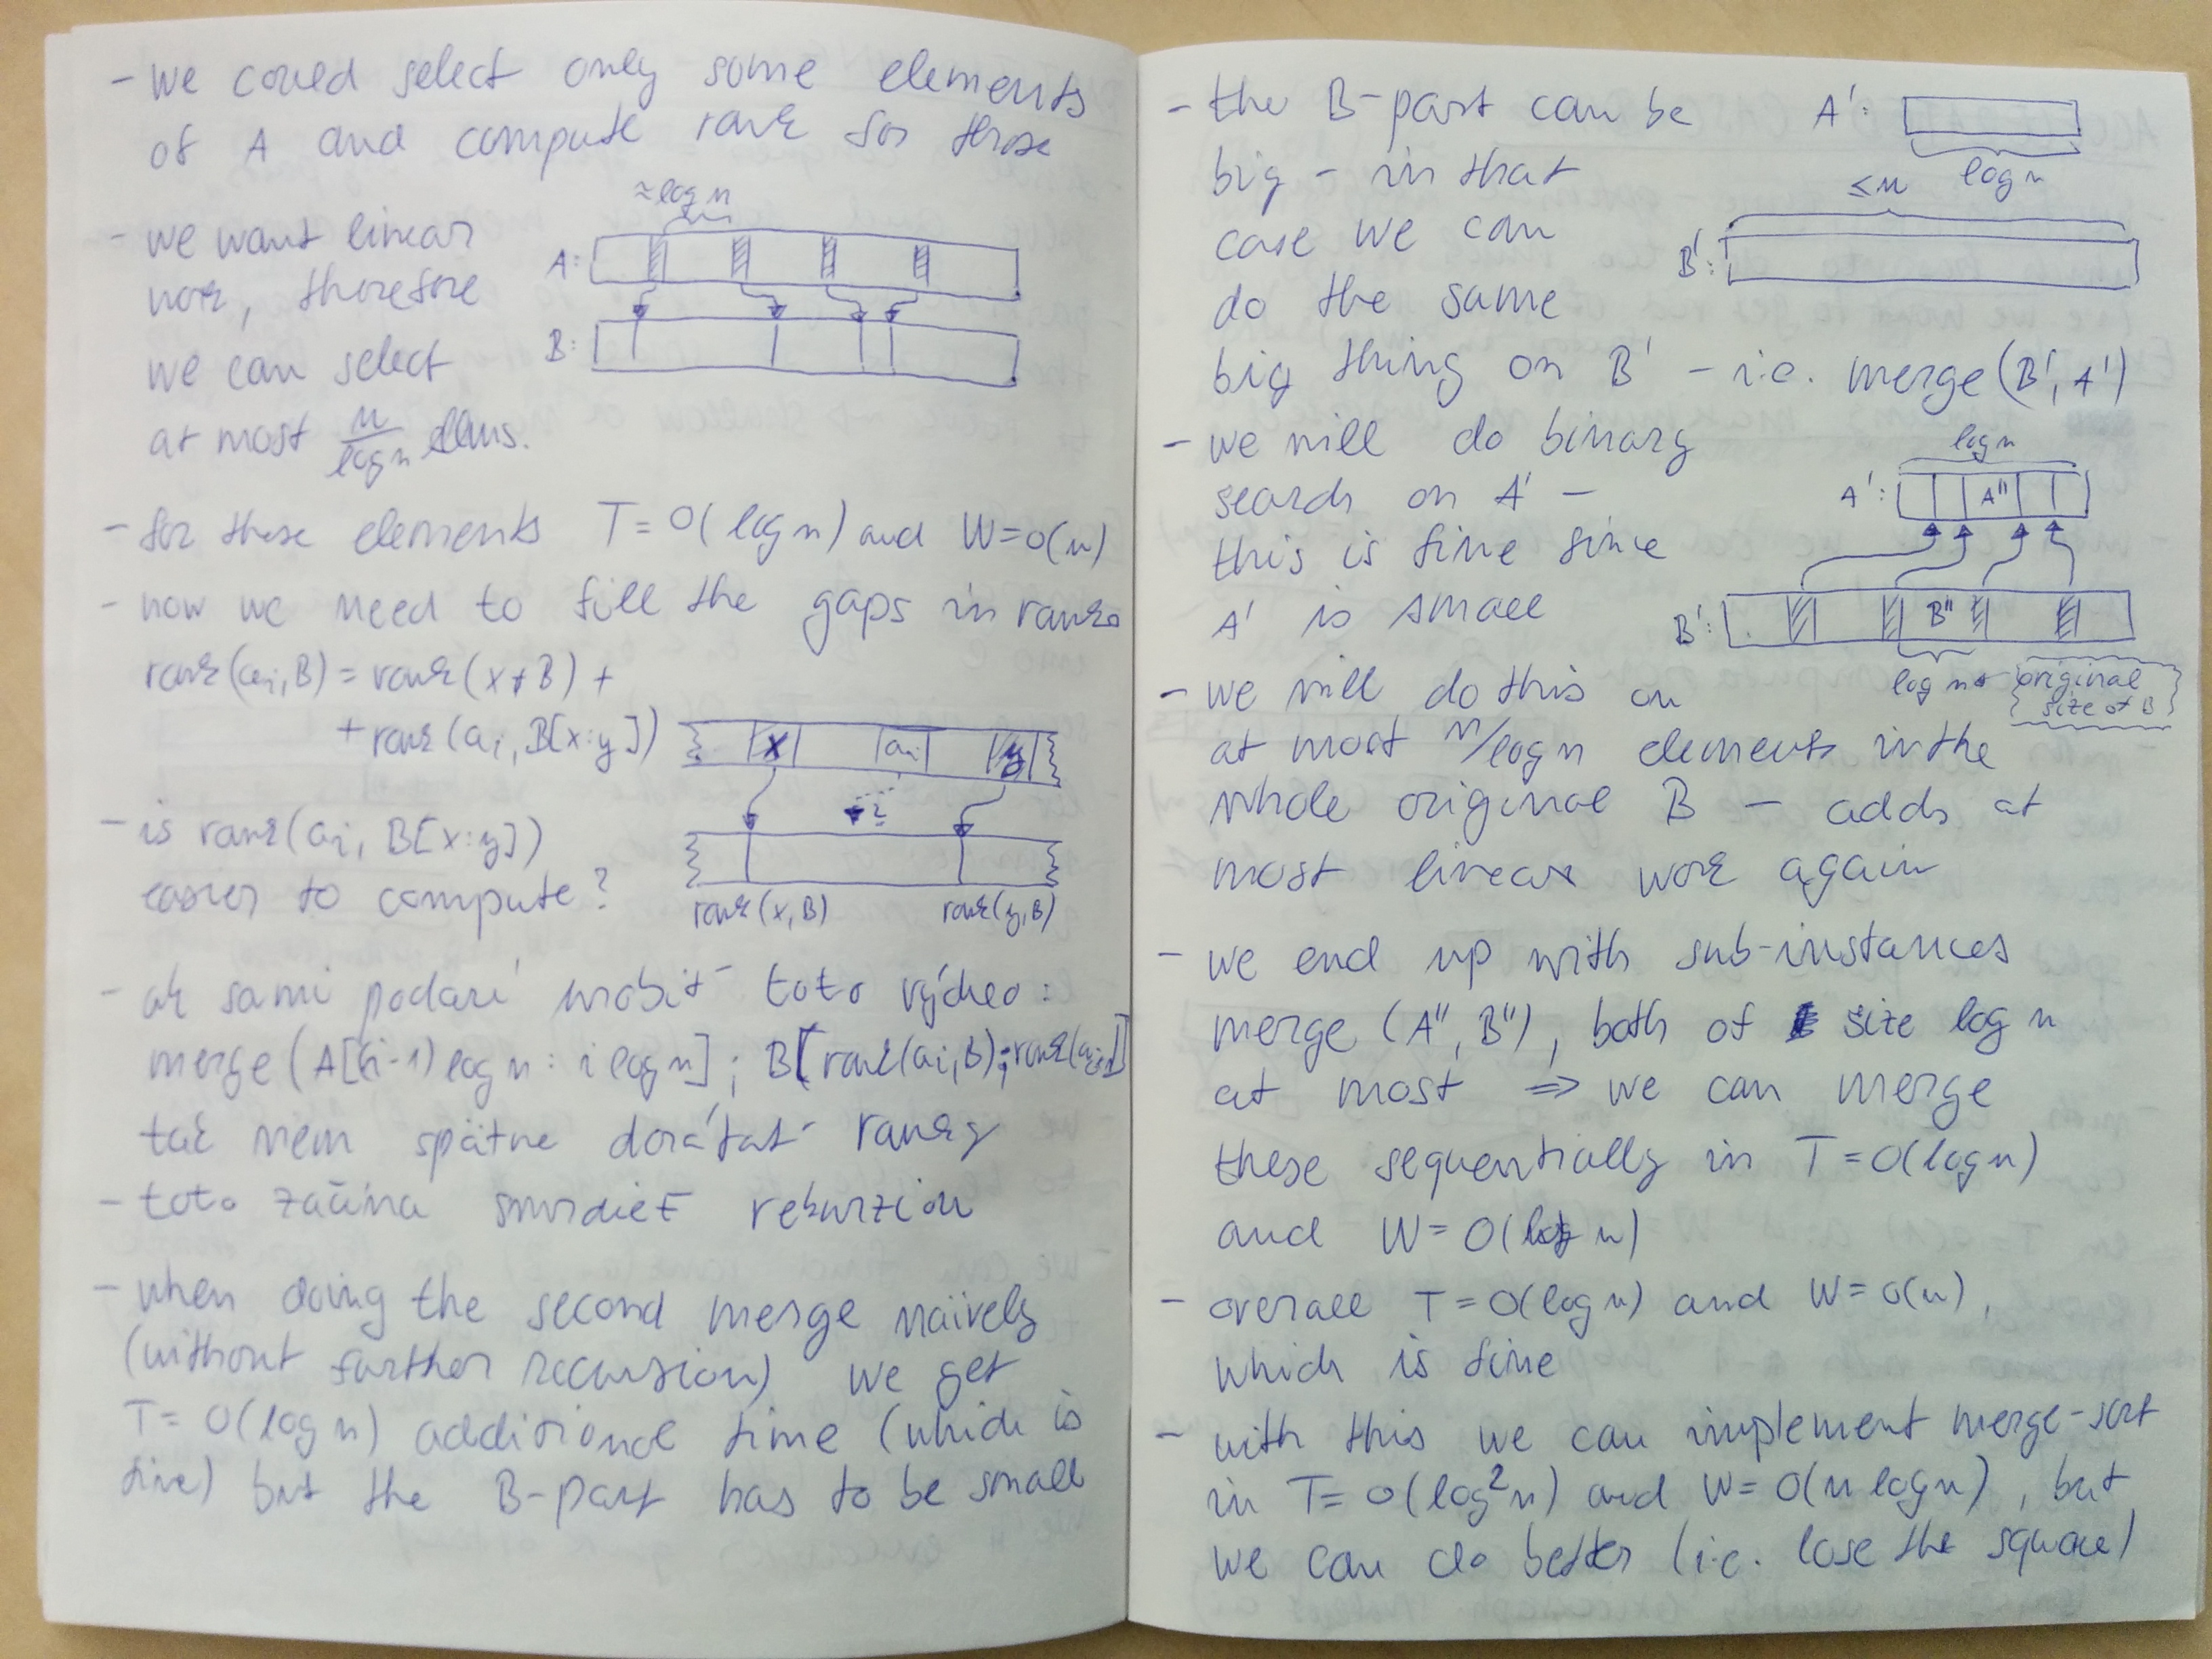 - we could select only some elements
of A and compute rank for those
≈ log n
- we want linear
work, therefore
we can select
at most n/log n elems.
A:
B:
- for these elements T = O(log n) and W = O(n)
- now we need to fill the gaps in ranks
rank(ai, B) = rank(x, B) +
+ rank(ai, B[x:y])
x ai y
?
rank(x, B) rank(y, B)
- is rank(ai, B[x:y])
easier to compute?
- ak sami podarí urobiť toto rýchlo:
merge(A[(i-1) log n : i log n] ; B[rank(ai, B) : rank(ai+1)]
tak viem spätne dorátať ranky
- toto začína smrdieť rekurziou
- when doing the second merge naively
(without further recursion) we get
T = O(log n) additional time (which is
fine) but the B-part has to be small
- the B-part can be
big - in that
case we can
do the same
big thing on B' - i.e. merge(B', A')
A':
log n
≤ n
B':
- we will do binary
search on A' -
this is fine since
A' is small
log n
A': A''
B': B''
log n of original
size of B
- we will do this on
at most n/log n elements in the
whole original B - adds at
most linear work again
- we end up with sub-instances
merge (A'', B''), both of size log n
at most ⇒ we can merge
these sequentially in T = O(log n)
and W = O(log n)
- overall T = O(log n) and W = O(n),
which is fine
- with this we can implement merge-sort
in T = O(log² n) and W = O(n log n), but
we can do better (i.e. lose the square)